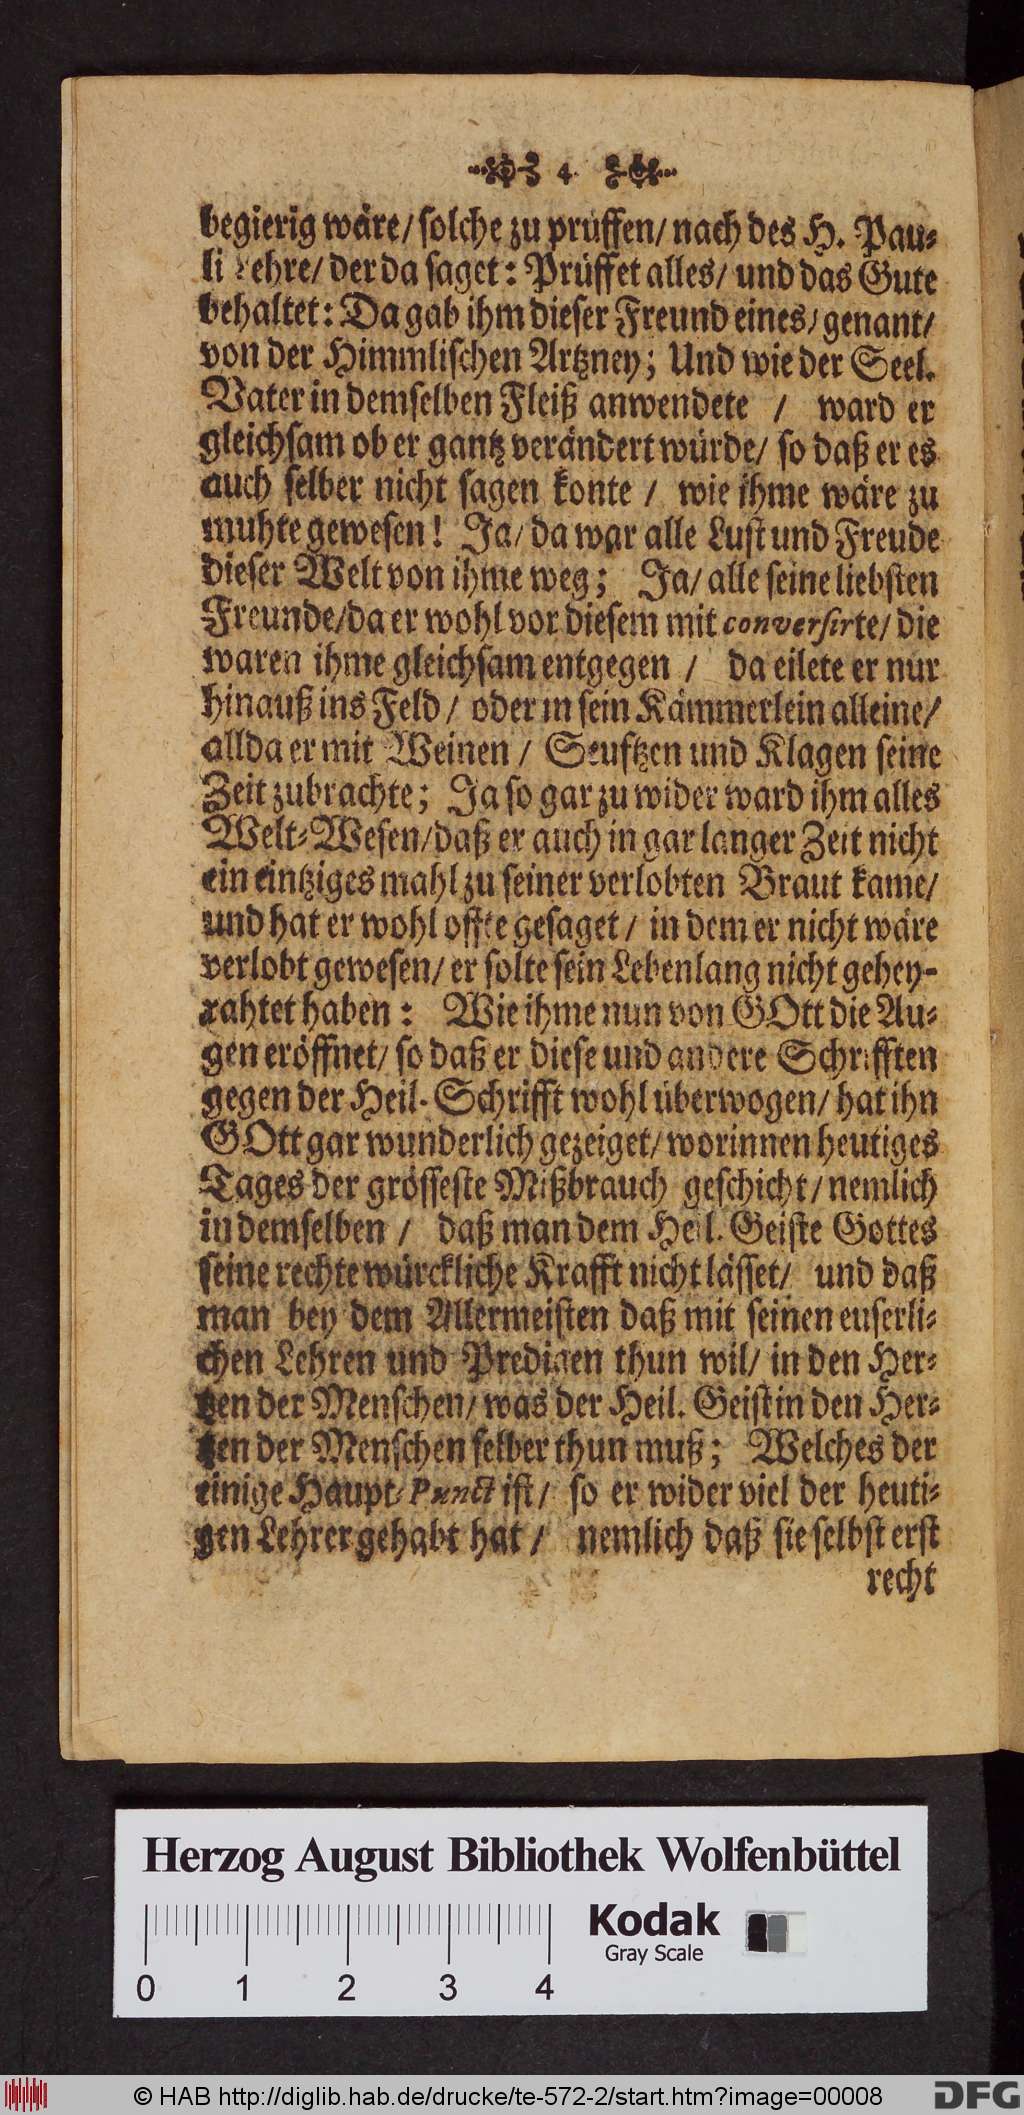 4
begierig wäre/ solche zu prüffen/ nach des H. Pau-
li Lehre/ der da saget: Prüffet alles/ und das Gute
behaltet: Da gab ihm dieser Freund eines/ genant/
von der Himmlischen Artzney; Und wie der Seel.
Vater in demselben Fleiß anwendete / ward er
gleichsam ob er gantz verändert würde/ so daß er es
auch selber nicht sagen konte / wie ihme wäre zu
muhte gewesen! Ja/ da war alle Lust und Freude
dieser Welt von ihme weg; Ja/ alle seine liebsten
Freunde/ da er wohl vor diesem mit conversirte/ die
waren ihme gleichsam entgegen / da eilete er nur
hinauß ins Feld / oder in sein Kämmerlein alleine/
allda er mit Weinen / Seuftzen und Klagen seine
Zeit zubrachte; Ja so gar zu wider ward ihm alles
Welt-Wesen/ daß er auch in gar langer Zeit nicht
ein eintziges mahl zu seiner verlobten Braut kame/
und hat er wohl offte gesaget / in dem er nicht wäre
verlobt gewesen/ er solte sein Lebenlang nicht gehey-
rahtet haben: Wie ihme nun von GOtt die Au-
gen eröffnet/ so daß er diese und andere Schrifften
gegen der Heil. Schrifft wohl überwogen/ hat ihn
GOtt gar wunderlich gezeiget/ worinnen heutiges
Tages der grösseste Mißbrauch geschicht/ nemlich
in demselben / daß man dem Heil. Geiste Gottes
seine rechte würckliche Krafft nicht lässet/ und daß
man bey dem Allermeisten daß mit seinen euserli-
chen Lehren und Predigen thun wil/ in den Her-
tzen der Menschen/ was der Heil. Geist in den Her-
tzen der Menschen selber thun muß; Welches der
einige Haupt-Punct ist/ so er wider viel der heuti-
gen Lehrer gehabt hat / nemlich daß sie selbst erst
recht
Herzog August Bibliothek Wolfenbüttel
Kodak
Gray Scale
0 1 2 3 4
© HAB http://diglib.hab.de/drucke/te-572-2/start.htm?image=00008
DFG